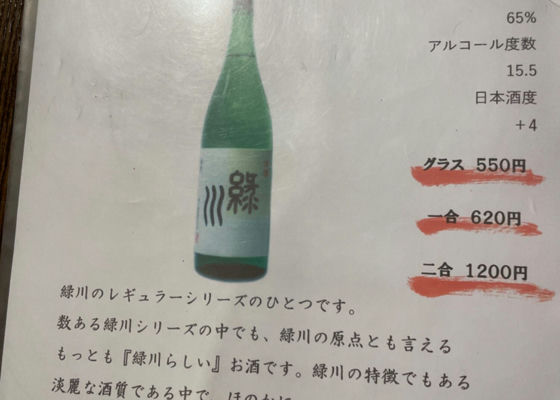 65%
アルコール度数
15.5
日本酒度
+4
緑川
グラス 550円
一合 620円
二合 1200円
緑川のレギュラーシリーズのひとつです。
数ある緑川シリーズの中でも、緑川の原点とも言える
もっとも『緑川らしい』お酒です。緑川の特徴でもある
淡麗な酒質である中で、ほのかに